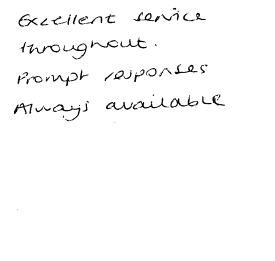 Excellent service
throughout.
Prompt responses
Always available